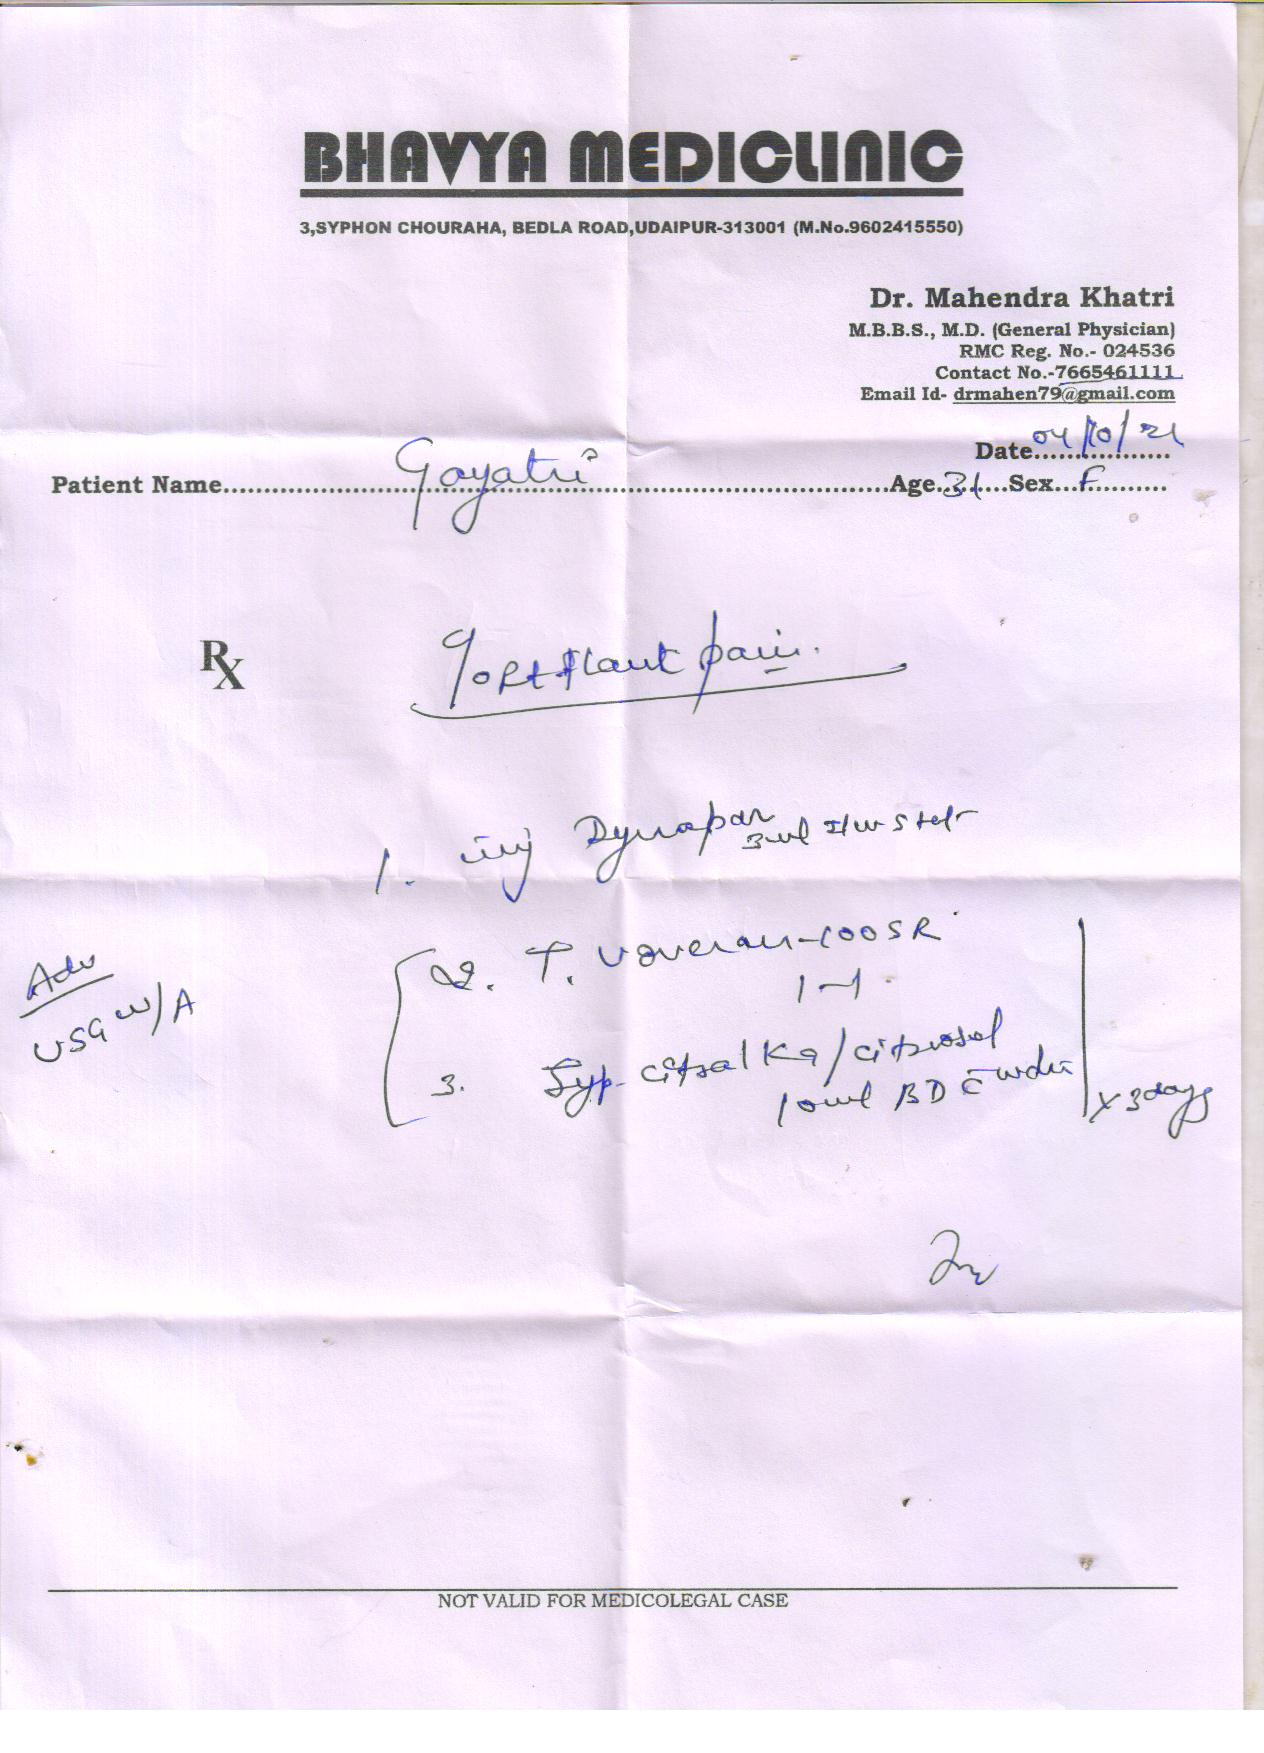 BHAVYA MEDICLINIC
3,SYPHON CHOURAHA, BEDLA ROAD,UDAIPUR-313001 (M.No.9602415550)
Dr. Mahendra Khatri
M.B.B.S., M.D. (General Physician)
RMC Reg. No.- 024536
Contact No.-7665461111
Email Id- drmahen79@gmail.com
Date 04/10/21
Patient Name Gayatri Age 31 Sex F
Rx
Rt flank pain.
1. inj Dynapar 3ml I/M Stat
2. T. Voveran-100SR
1-1
Adv
USG W/A
3. Syp. Citralka/citrosol
10ml BD c water
x 3days
NOT VALID FOR MEDICOLEGAL CASE